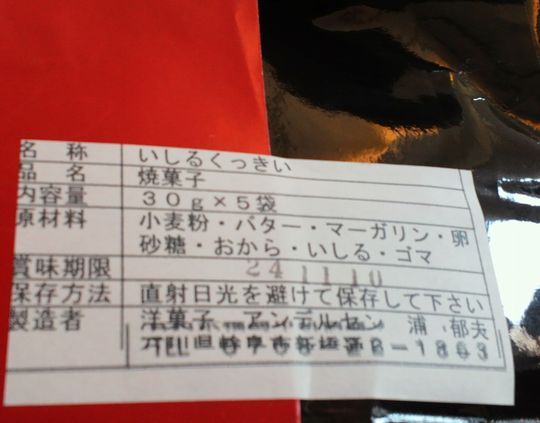 名 称 いしるくっきい
品 名 焼菓子
内容量 30g×5袋
原材料 小麦粉・バター・マーガリン・卵
砂糖・おから・いしる・ゴマ
賞味期限 24 11 10
保存方法 直射日光を避けて保存して下さい
製造者 洋菓子 アンデルセン 浦 郁夫
TEL